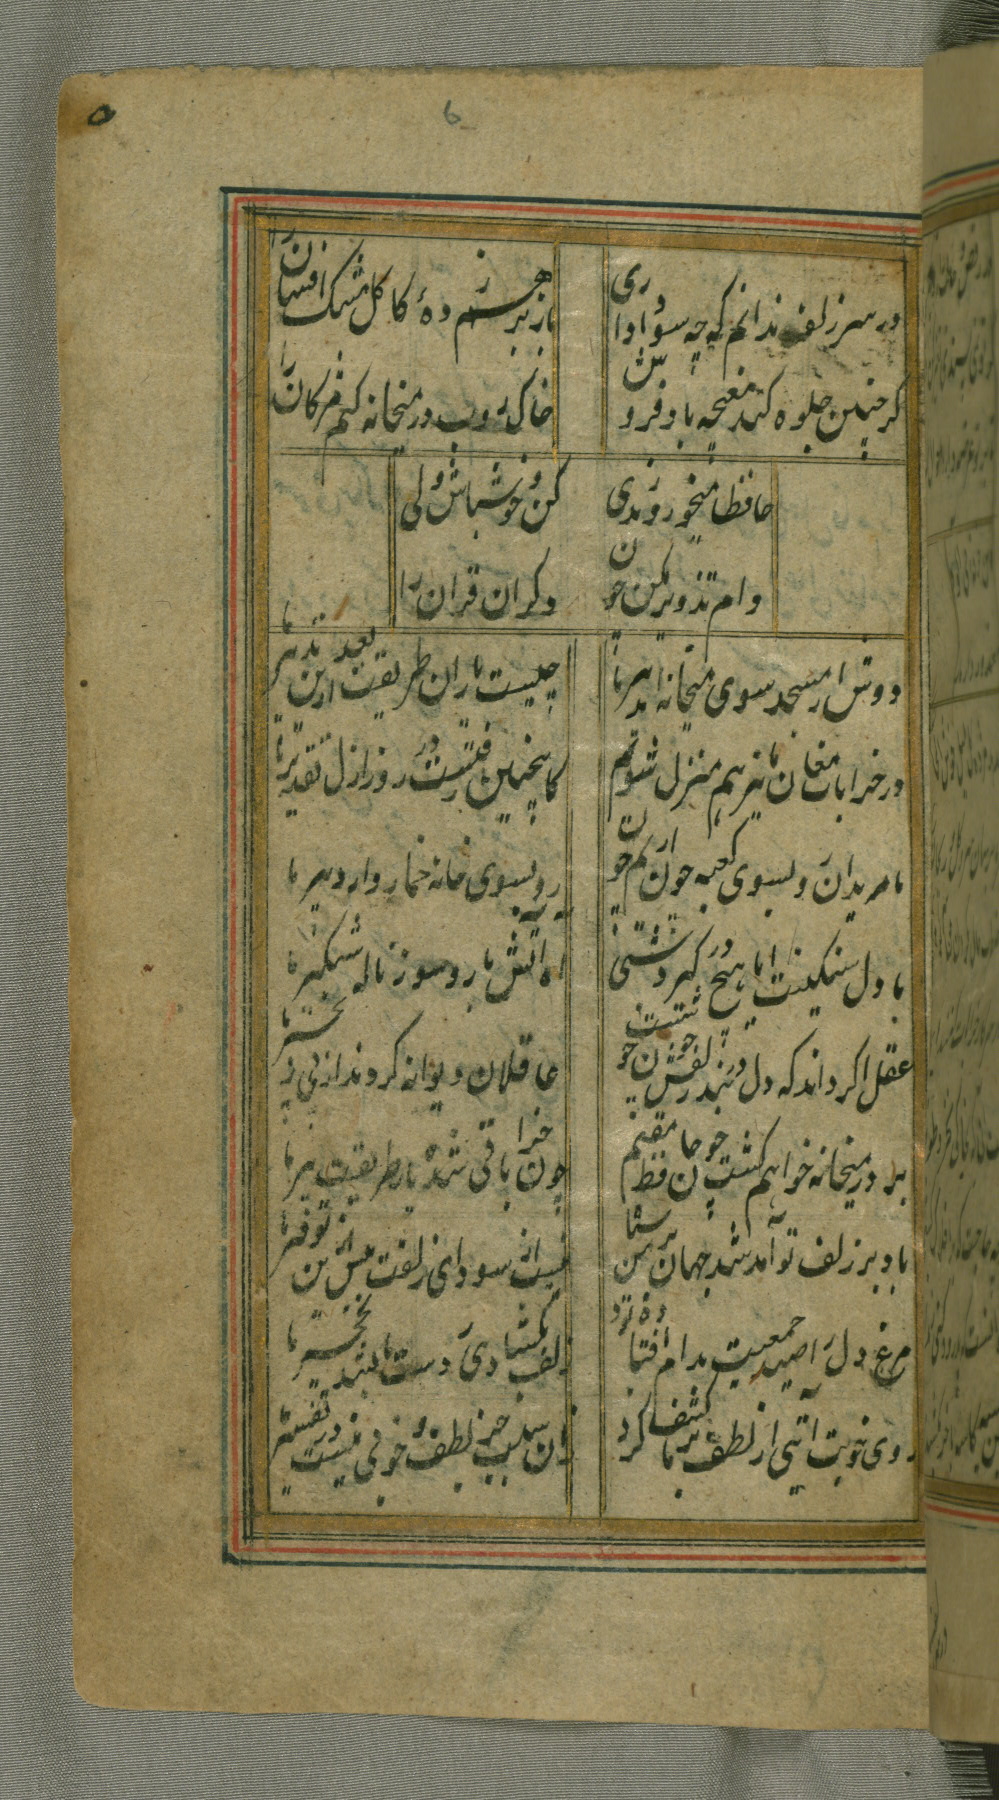 ۵
6
در سر زلف ندانم که چه سودا داری
باز بر هم زده کاکل مشک افشان را
کر چنین جلوه کند مغبچه باده فروش
خاک روب در میخانه کنم مژکان را
حافظا میخور و رندی کن و خوشباش ولی
دام تذویر مکن چون دکران قران را
دوش از مسجد سوی میخانه امد پیر ما
چیست یاران طریقت بعد ازین تدبیر ما
در خرابات مغان ما نیز هم منزل شویم
کاینچنین رفتست در روز ازل تقدیر ما
ما مریدان رو بسوی کعبه چون اریم چون
رو بسوی خانه خمار دارد پیر ما
با دل سنکینت ایا هیچ در کیرد شبی
اه اتش بار و سوز ناله شبکیر ما
عقل اکر داند که دل در بند زلفش چون خوشست
عاقلان دیوانه کردند از پی زنجیر ما
بر در میخانه خواهم کشت چون حافظ مقیم
چون خراباتی شد ای یار طریقت پیر ما
باد بر زلف تو آمد شد جهان بر من سیا
نیست از سودای زلفت بیش ازین توفیر ما
مرغ دل را صید جمعیت بدام افتاده بود
زلف بکشادی ز دست ما بشد نخچیر ما
روی خوبت آیتی از لطف بر ما کشف کرد
زان سبب جز لطف و خوبی نیست در تفسیر ما